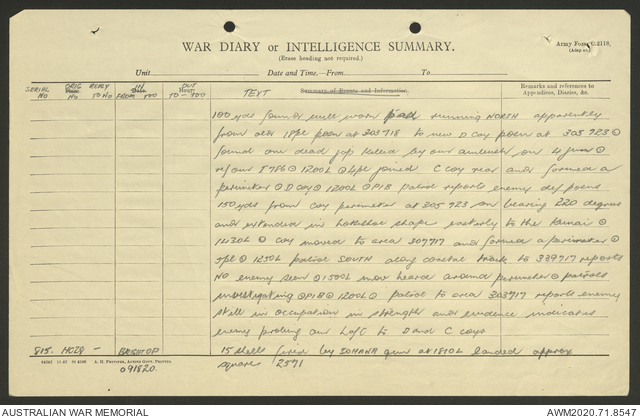 WAR DIARY or INTELLIGENCE SUMMARY.
(Erase heading not required.)
Army Form C.2118.
Unit Date and Time.—From To
SERIAL NO ORIG NO REPLY TO NO FROM TOO OUT TO - TOO TEXT Summary of Events and Information. Remarks and references to Appendices, Diaries, &c.
100 yds found well worn pad running NORTH apparently
from old 18pl posn at 303718 to new D Coy posn at 303723 @
found one dead jap killed by our ambush on 4 June @
ref our I 786 @ 1200L @ 4pl joined C coy rear and formed a
perimeter @ D coy @ 1200L @ PIB patrol reports enemy def posns
150 yds from coy perimeter at 305723 on bearing 220 degrees
and extended in horseshoe shape easterly to the
1430L @ coy moved to area 307717 and formed a perimeter @
5pl @ 1250L patrol SOUTH along coastal track to 339717 reports
NO enemy seen @ 1500L mov heard around perimeter @ patrols
investigating @ PIB @ 1200L @ patrol to area 303717 reports enemy
still in occupation in strength and evidence indicates
enemy probing our LofC to D and C coys
815. HQ29 - BRIGHTOP 15 shells fired by SOHANA gun at 1810L landed approx
091820. square 2571
AUSTRALIAN WAR MEMORIAL
AWM2020.71.8547